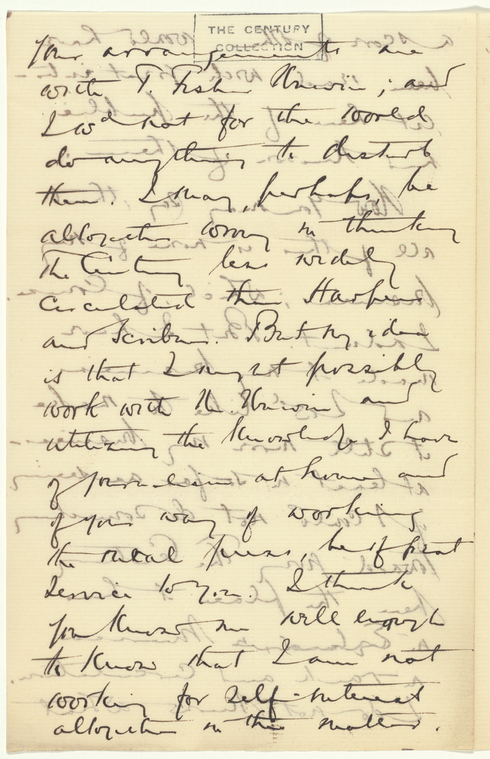 THE CENTURY
COLLECTION
Your arrangements are
with T. Fisher Unwin; and
I wd not for the world
do anything to disturb
them. I may, perhaps, be
altogether wrong in thinking
The Century less widely
circulated than Harpers
and Scribners. But my idea
is that I might possibly
work with Mr. Unwin and
utilizing the knowledge I have
of journalism at home and
of your way of working
the press, be of great
service to you. I think
you know me well enough
to know that I am not
working for self-interest
altogether in this matter.